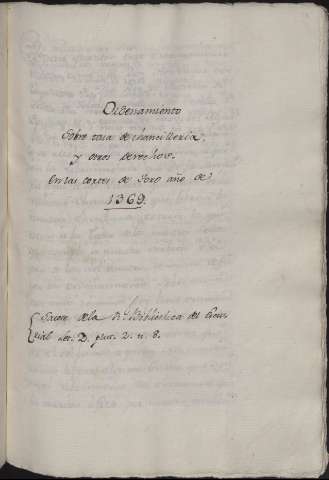 Ordenamiento
sobre tasa de chancilleria,
y otros derechos.
En las cortes de Toro año de
1369.
Sacose de la Rl. Biblioteca del Escu
rial Let. D. plut. 2. n. 8.